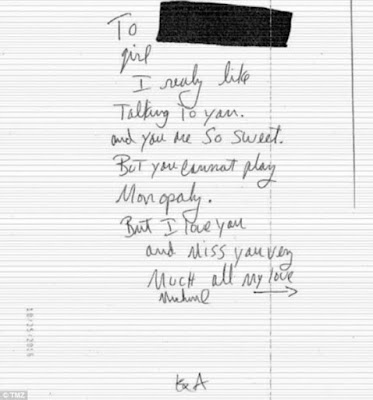 To
girl
I realy like
Talking To you.
and you are so sweet.
But you cannot play
Monopoly.
But I love you
and Miss you very
Much all my love
Michael
10/25/2005
© TMZ